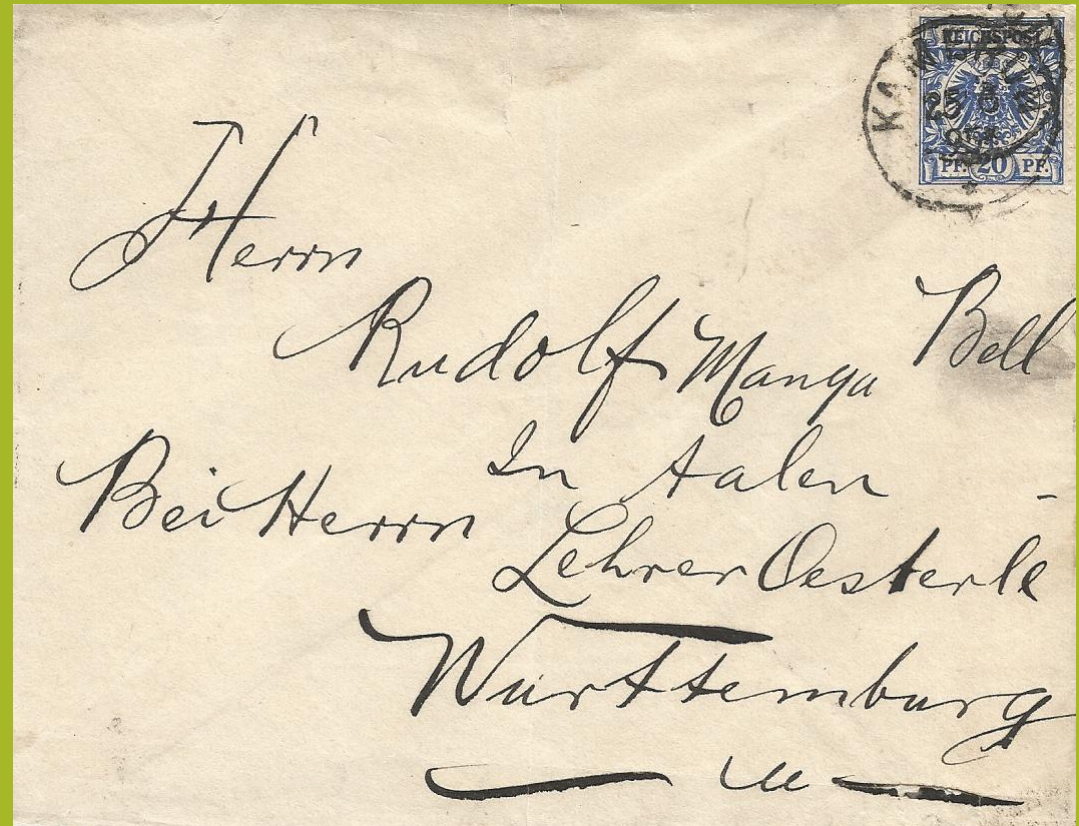 REICHSPOST
PF. 20 PF.
KAMERUN
Herrn
Rudolf Manga Bell
In Aalen -
Bei Herrn
Lehrer Oesterle
Württemburg